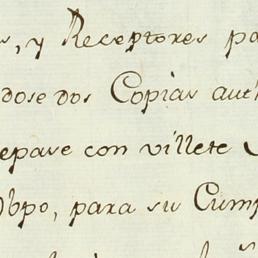 s, y Receptores pa
dose dos Copias auth
epase con villete
Obpo, para su Cump